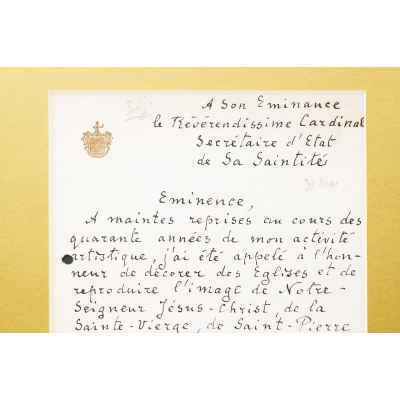 A Son Eminance
le Révérendissime Cardinal
Secrétaire d'Etat
de Sa Saintités
Eminence,
A maintes reprises au cours des
quarante années de mon activité
artistique, j'ai été appelé à l'hon-
neur de décorer des Eglises et de
reproduire l'image de Notre-
Seigneur Jésus-Christ, de la
Sainte-Vierge, de Saint-Pierre